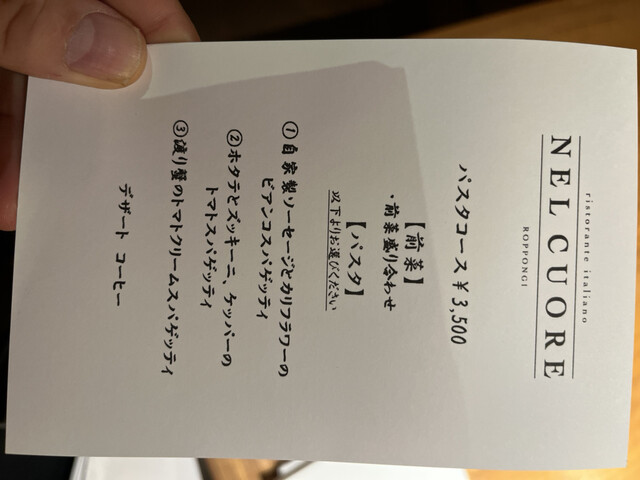 ristorante italiano
NEL CUORE
ROPPONGI
パスタコース ¥3,500
【前菜】
・前菜盛り合わせ
【パスタ】
以下よりお選びください
①自家製ソーセージとカリフラワーの
ビアンコスパゲッティ
②ホタテとズッキーニ、ケッパーの
トマトスパゲッティ
③渡り蟹のトマトクリームスパゲッティ
デザート コーヒー